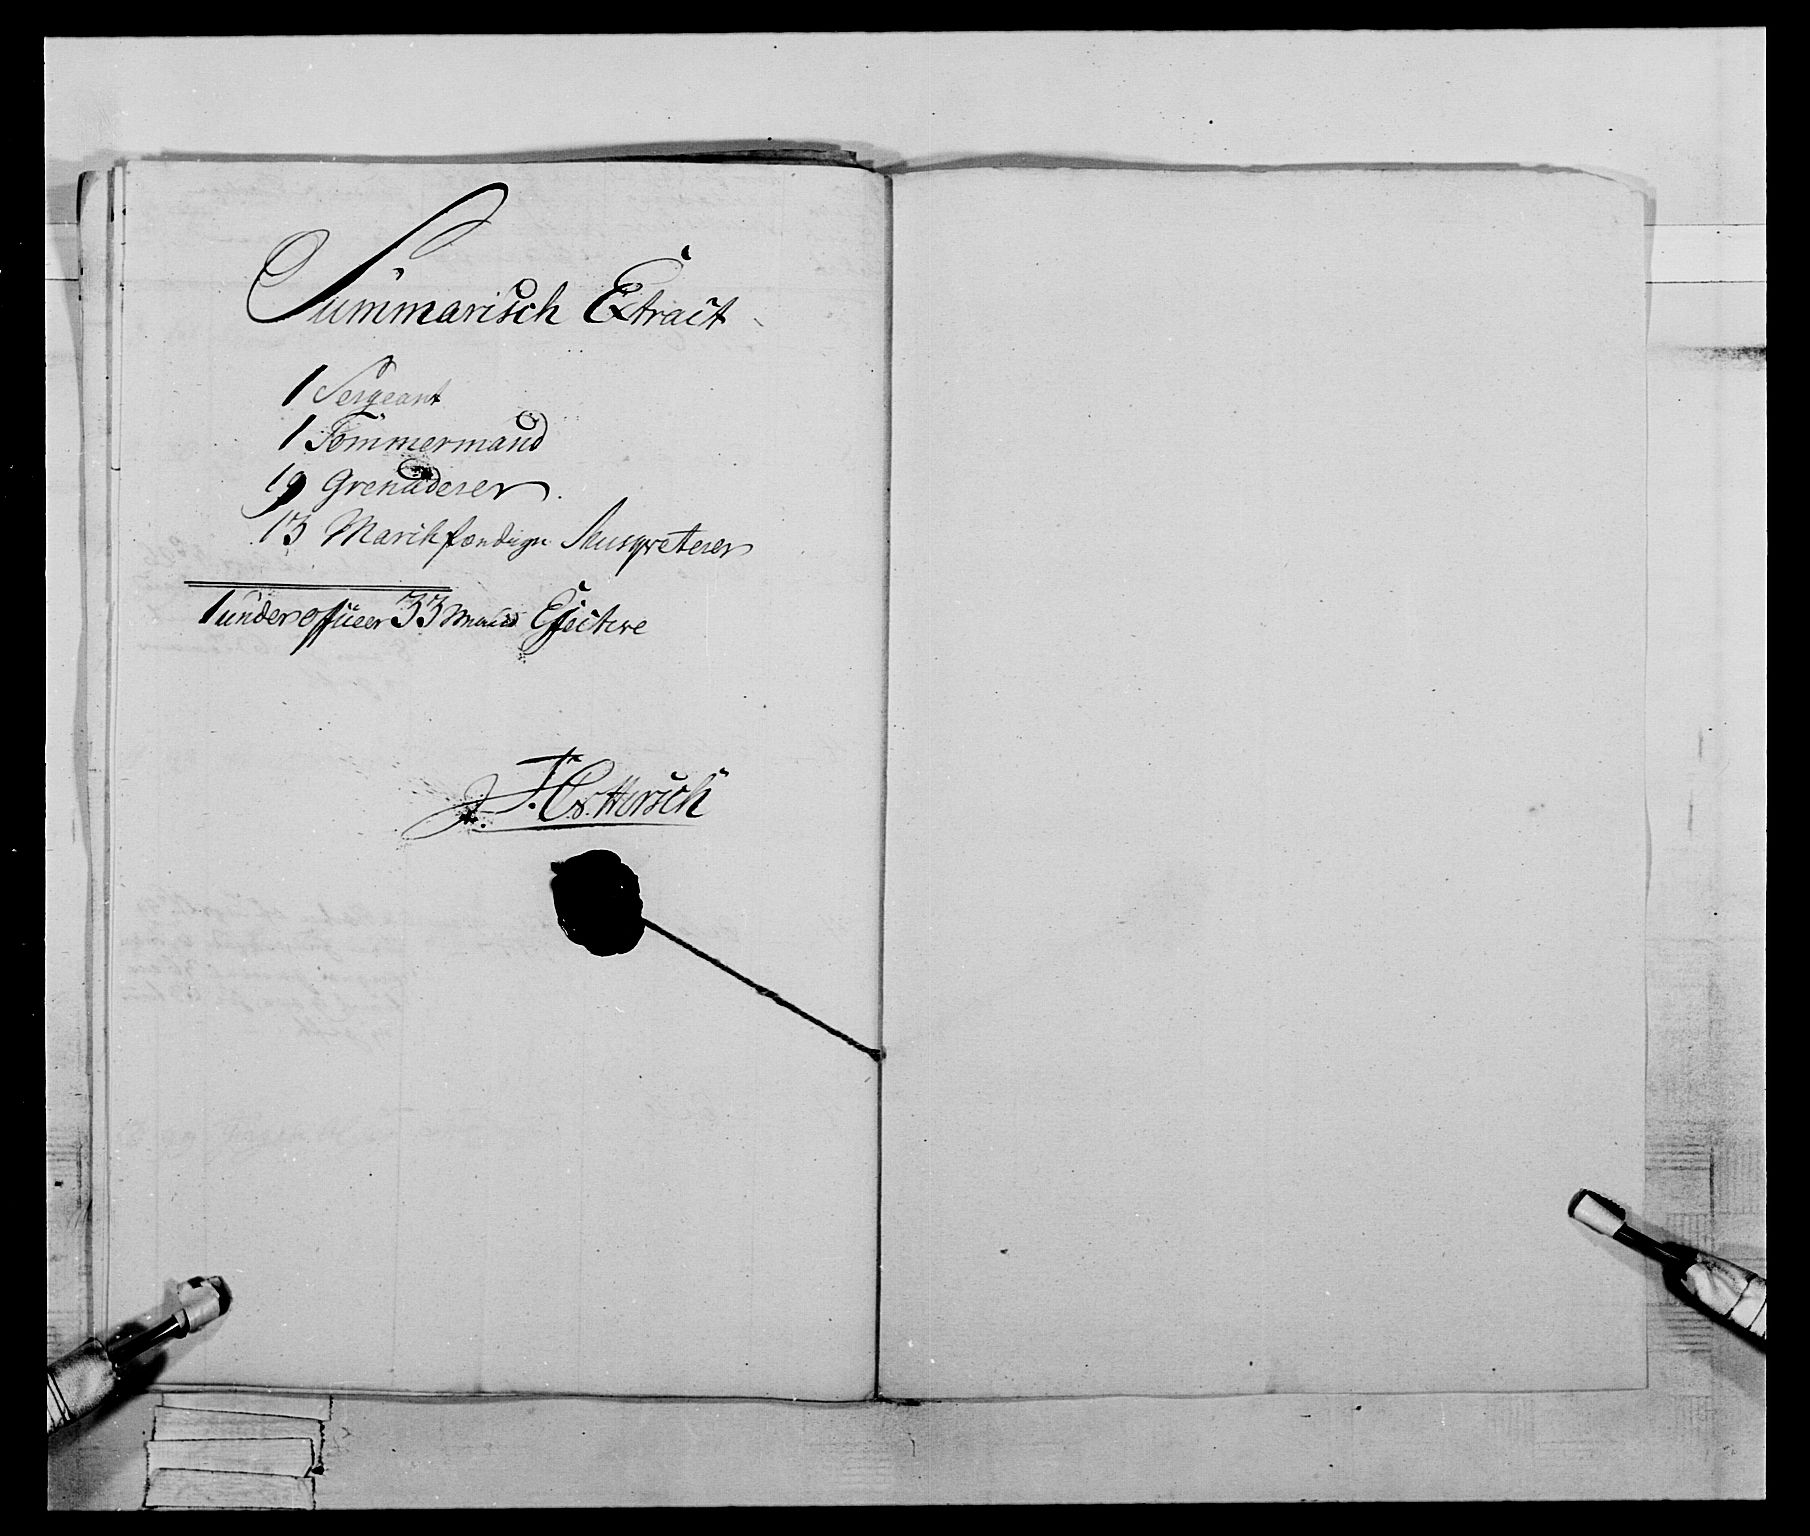 Summarisch Extract
1 Sergeant
1 Tømmermand
19 Grenaderer
13 March færdige Musqveterer
1 underofficer 33 Mand Efective